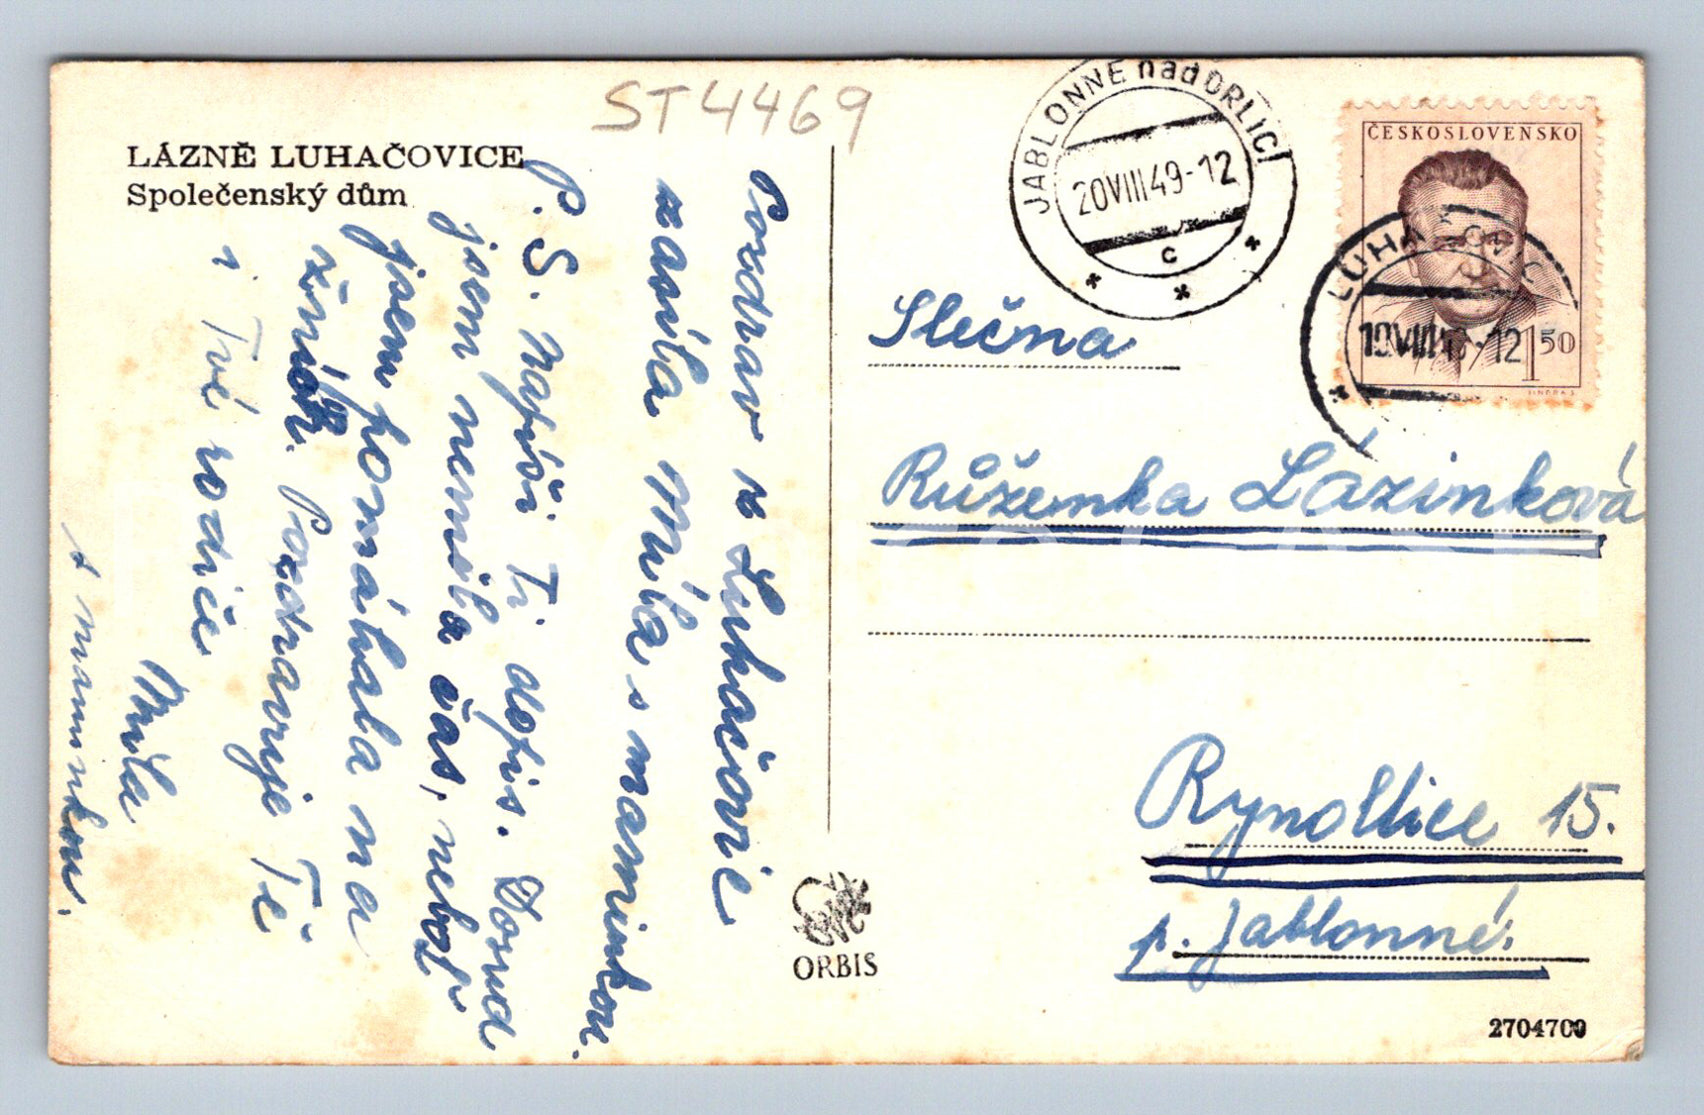 ST4469
LÁZNĚ LUHAČOVICE
Společenský dům
Pozdrav z Luhačovic
zasílá Míla s maminkou.
P.S. Napíši Ti dopis. Dosud
jsem neměla čas, neboť
jsem pomáhala na
žních. Pozdravuje Tě
i Tvé rodiče
Míla
s maminkou.
JABLONNÉ nad ORLICÍ
20VIII49-12
C
ČESKOSLOVENSKO
1 50
LUHAČOVICE
-12
Slečna
Růženka Lázinková
Rynoltice 15.
p. Jablonné.
ORBIS
2704700